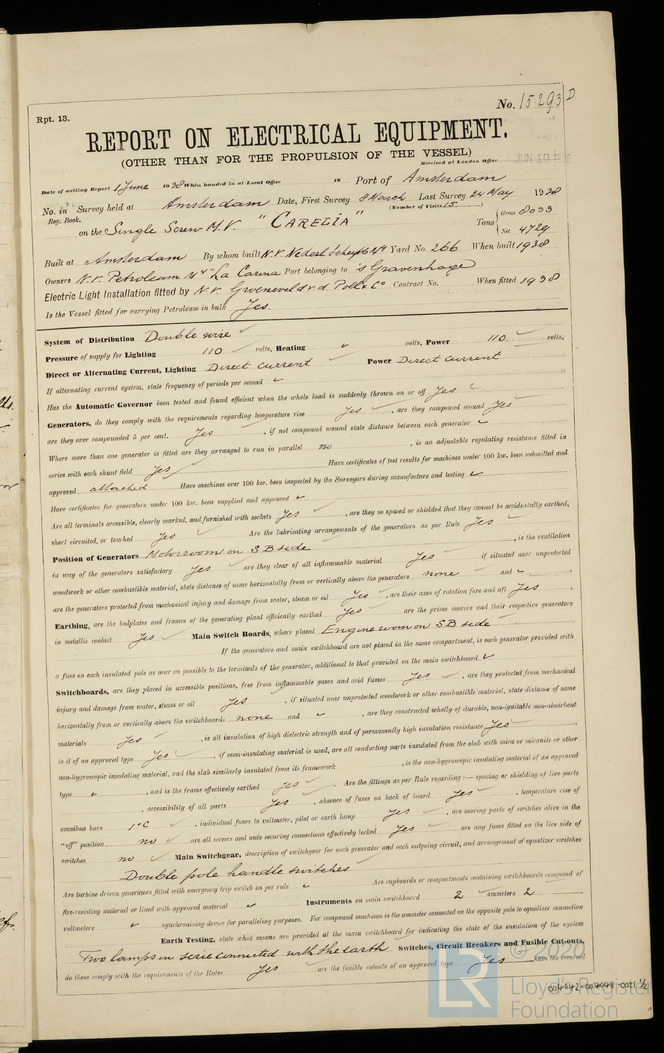 Rpt. 13.
No. 15293 D
REPORT ON ELECTRICAL EQUIPMENT.
(OTHER THAN FOR THE PROPULSION OF THE VESSEL)
Received at London Office JUN 10
Date of writing Report 1 June 1938 When handed in at Local Office 19 Port of Amsterdam
No. in Survey held at Amsterdam Date, First Survey 8 March Last Survey 24 May 1938
Reg. Book. (Number of Visits 15)
on the Single Screw M.V. "CARELIA" Tons { Gross 8033
Net 4729
Built at Amsterdam By whom built N.V. Nederl. Yard No. 266 When built 1938
Owners N.V. Petroleum My La Corona Port belonging to 's Gravenhage
Electric Light Installation fitted by N.V. Groeneveld v. d. Poll & Co Contract No. When fitted 1938
Is the Vessel fitted for carrying Petroleum in bulk Yes.
System of Distribution Double wire
Pressure of supply for Lighting 110 volts, Heating volts, Power 110. volts.
Direct or Alternating Current, Lighting Direct current Power Direct current
If alternating current system, state frequency of periods per second
Has the Automatic Governor been tested and found efficient when the whole load is suddenly thrown on or off Yes
Generators, do they comply with the requirements regarding temperature rise Yes, are they compound wound Yes
are they over compounded 5 per cent. Yes, if not compound wound state distance between each generator
Where more than one generator is fitted are they arranged to run in parallel no, is an adjustable regulating resistance fitted in
series with each shunt field Yes Have certificates of test results for machines under 100 kw. been submitted and
approved attached Have machines over 100 kw. been inspected by the Surveyors during manufacture and testing
Have certificates for generators under 100 kw. been supplied and approved
Are all terminals accessible, clearly marked, and furnished with sockets Yes, are they so spaced or shielded that they cannot be accidentally earthed,
short circuited, or touched Yes Are the lubricating arrangements of the generators as per Rule Yes
Position of Generators Motorroom on SB side, is the ventilation
in way of the generators satisfactory Yes are they clear of all inflammable material Yes if situated near unprotected
woodwork or other combustible material, state distance of same horizontally from or vertically above the generators none and
are the generators protected from mechanical injury and damage from water, steam or oil Yes, are their axes of rotation fore and aft Yes
Earthing, are the bedplates and frames of the generating plant efficiently earthed Yes are the prime movers and their respective generators
in metallic contact Yes Main Switch Boards, where placed Engineroom on SB side
If the generators and main switchboard are not placed in the same compartment, is each generator provided with
a fuse on each insulated pole as near as possible to the terminals of the generator, additional to that provided on the main switchboard
Switchboards, are they placed in accessible positions, free from inflammable gases and acid fumes Yes, are they protected from mechanical
injury and damage from water, steam or oil Yes, if situated near unprotected woodwork or other combustible material, state distance of same
horizontally from or vertically above the switchboards none and, are they constructed wholly of durable, non-ignitable non-absorbent
materials Yes, is all insulation of high dielectric strength and of permanently high insulation resistance Yes
is it of an approved type Yes, if semi-insulating material is used, are all conducting parts insulated from the slab with mica or micanite or other
non-hygroscopic insulating material, and the slab similarly insulated from its framework, is the non-hygroscopic insulating material of an approved
type, and is the frame effectively earthed Yes Are the fittings as per Rule regarding:— spacing or shielding of live parts
, accessibility of all parts Yes, absence of fuses on back of board Yes, temperature rise of
omnibus bars 1°C, individual fuses to voltmeter, pilot or earth lamp Yes, are moving parts of switches alive in the
"off" position no are all screws and nuts securing connections effectively locked Yes are any fuses fitted on the live side of
switches no Main Switchgear, description of switchgear for each generator and each outgoing circuit, and arrangement of equalizer switches
Double pole handle switches
Are turbine driven generators fitted with emergency trip switch as per rule Are cupboards or compartments containing switchboards composed of
fire-resisting material or lined with approved material Instruments on main switchboard 2 ammeters 2
voltmeters synchronising device for paralleling purposes. For compound machines is the ammeter connected on the opposite pole to equaliser connection
Earth Testing, state what means are provided at the main switchboard for indicating the state of the insulation of the system
Two lamps in serie connected with the earth Switches, Circuit Breakers and Fusible Cut-outs,
do these comply with the requirements of the Rules Yes are the fusible cutouts of an approved type Yes have the
© 2020
LR
Lloyd's Register
Foundation
004042-004048-0021 1/2